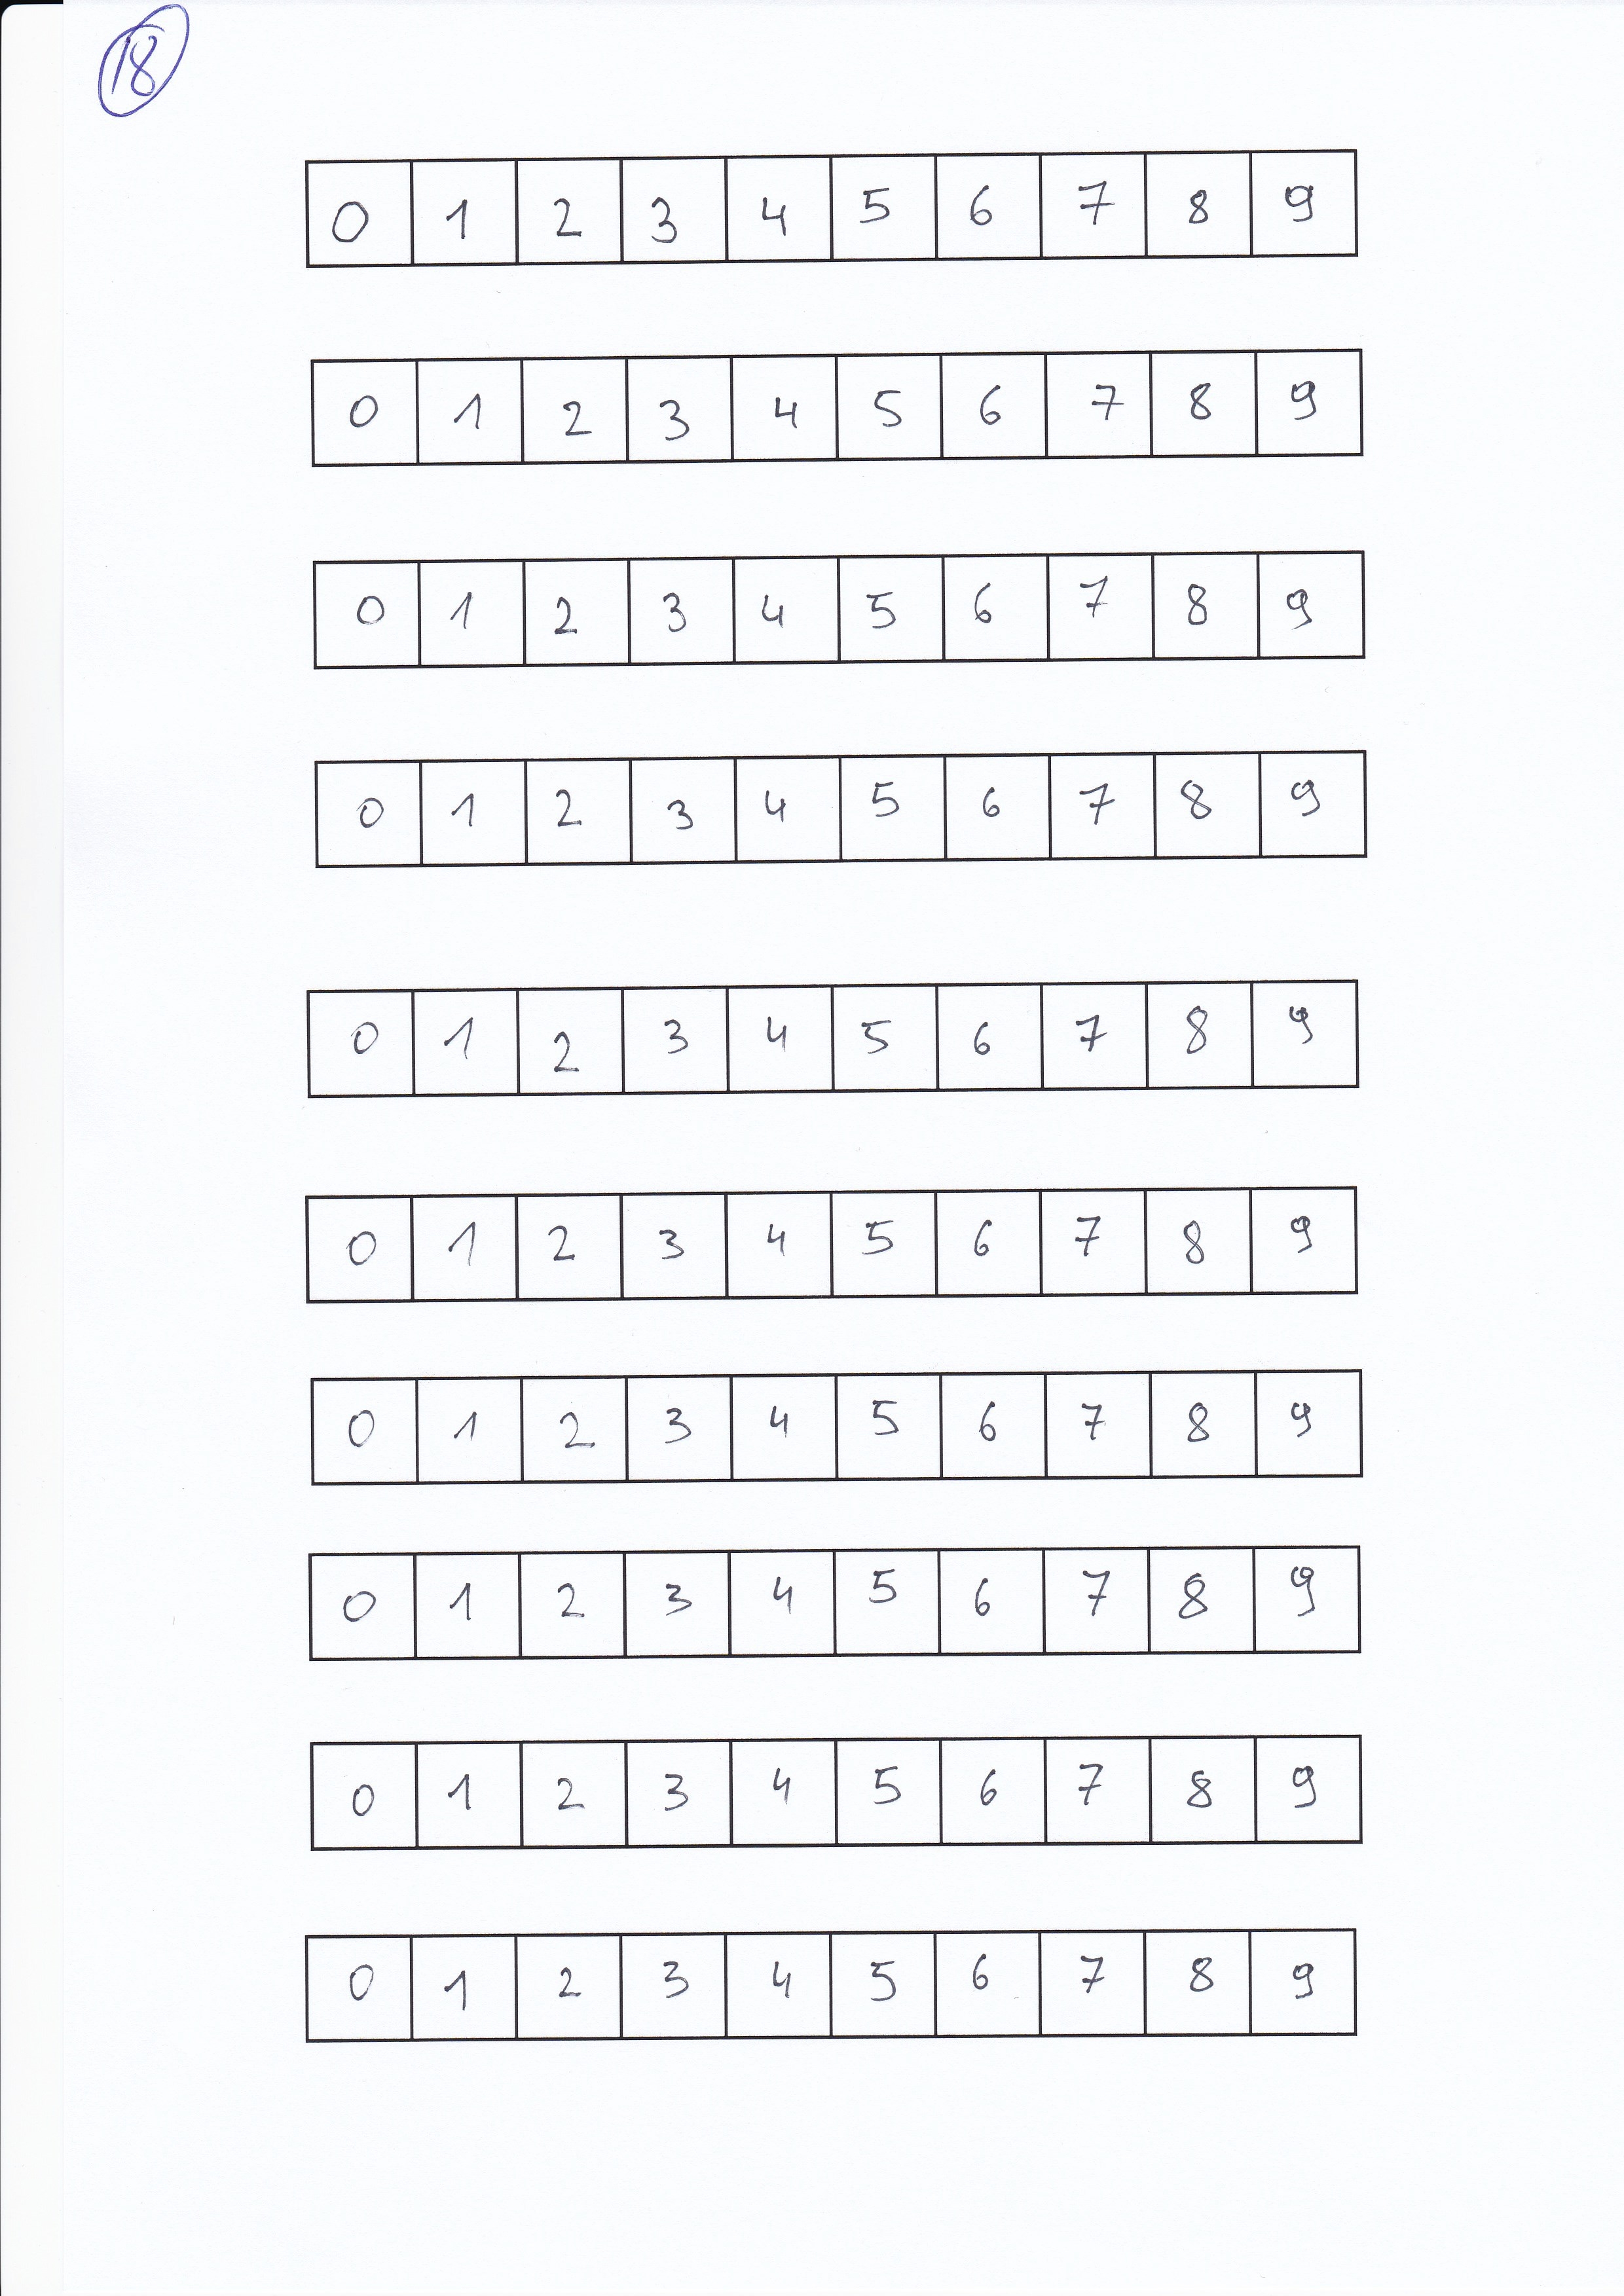 18
0 1 2 3 4 5 6 7 8 9
0 1 2 3 4 5 6 7 8 9
0 1 2 3 4 5 6 7 8 9
0 1 2 3 4 5 6 7 8 9
0 1 2 3 4 5 6 7 8 9
0 1 2 3 4 5 6 7 8 9
0 1 2 3 4 5 6 7 8 9
0 1 2 3 4 5 6 7 8 9
0 1 2 3 4 5 6 7 8 9
0 1 2 3 4 5 6 7 8 9